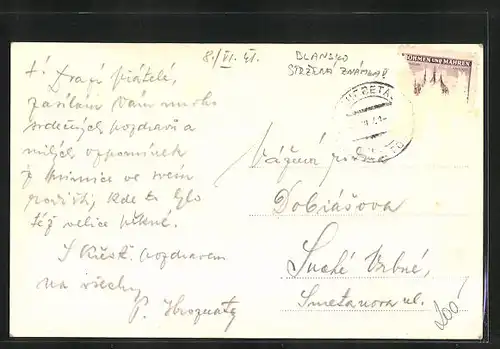 8./VI. 41.
BLANSKO
STRŽENÁ ZNÁMKA!
BÖHMEN UND MÄHREN
†! Drazí přátelé,
zasílám Vám mnoho
srdečných pozdravů a
milých vzpomínek
z
kde to bylo
též velice pěkné.
S křesť. pozdravem
na všechny
P. Hroznata
Vážená
Dobiášova
Suché Vrbné,
Smetanova ul.
200